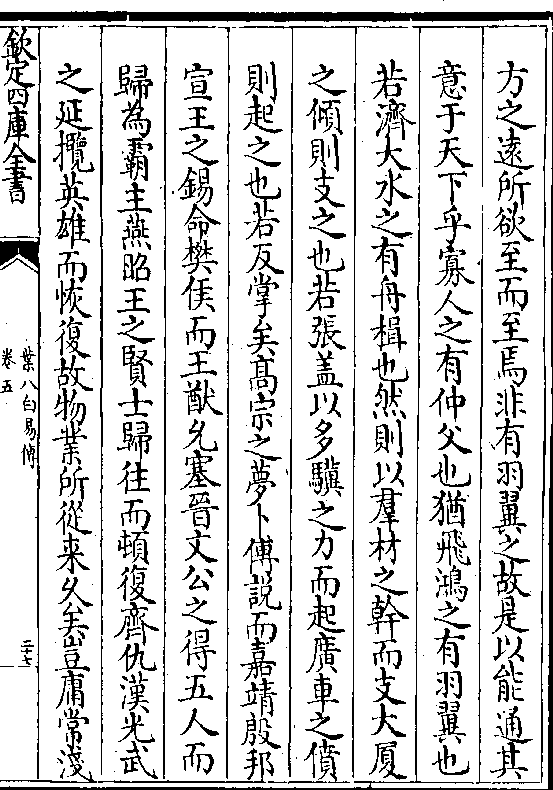 方之遠所欲至而至焉非有羽翼之故是以能通其
意于天下乎寡人之有仲父也猶飛鴻之有羽翼也
若濟大水之有舟楫也然則以羣材之幹而支大厦
之傾則支之也若張盖以多驥之力而起廣車之僨
則起之也若反掌矣髙宗之夢卜傅説而嘉靖殷邦
宣王之錫命樊侯而王猷允塞晉文公之得五人而
歸為霸主燕昭王之賢士歸往而頓復齊仇漢光武
之延攬英雄而恢復故物業所從来久矣豈庸常淺
欽定四庫全書
葉八白易傳
卷五
二十七